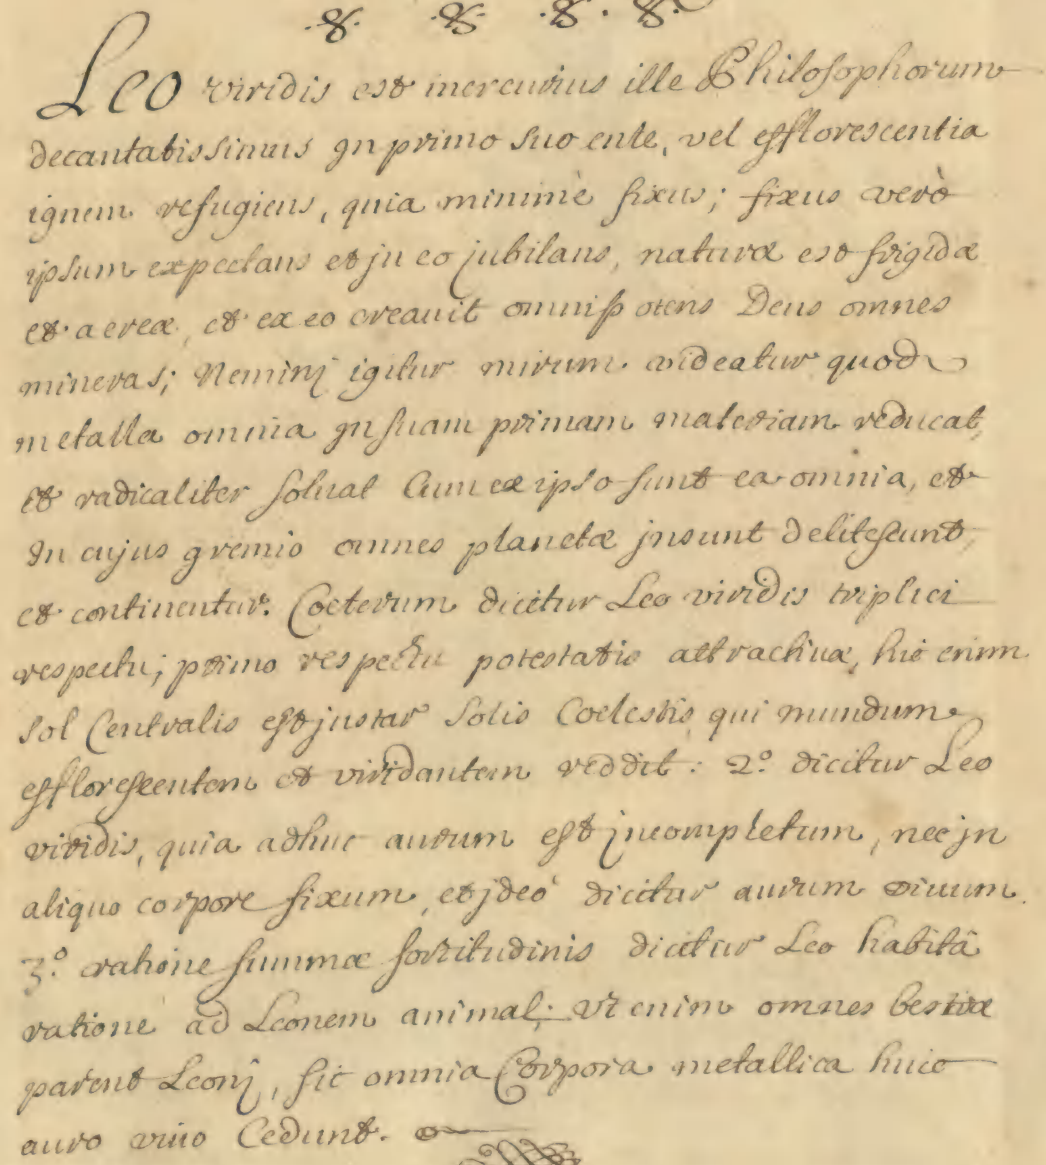 Leo viridis est mercurius ille Philosophorum
decantatissimus jn primo suo ente, vel efflorescentia
ignem refugiens, quia minimè fixus; fixus verò
ipsum expectans et jn eo jubilans, naturæ est frigidæ
et aereæ, et ex eo creauit omnipotens Deus omnes
mineras; Neminj igitur mirum videatur quod
metalla omnia jn suam primam materiam reducat,
et radicaliter soluat Cum ex ipso sunt ea omnia, et
jn cujus gremio omnes planetæ jnsunt delitescunt,
et continentur. Cœterum dicitur Leo viridis triplici
respectu; primo respectu potestatis attractiuæ, hic enim
sol Centralis est jnstar Solis Coelestis, qui mundum
efflorescentem et viridantem reddit: 2º. dicitur Leo
viridis, quia adhuc aurum est jncompletum, nec jn
aliquo corpore fixum, et jdeò dicitur aurum viuum.
3º. ratione summæ fortitudinis dicitur Leo habitâ
ratione ad Leonem animal; vt enim omnes bestiæ
parent Leonj, sic omnia Corpora metallica huic
auro viuo Cedunt.